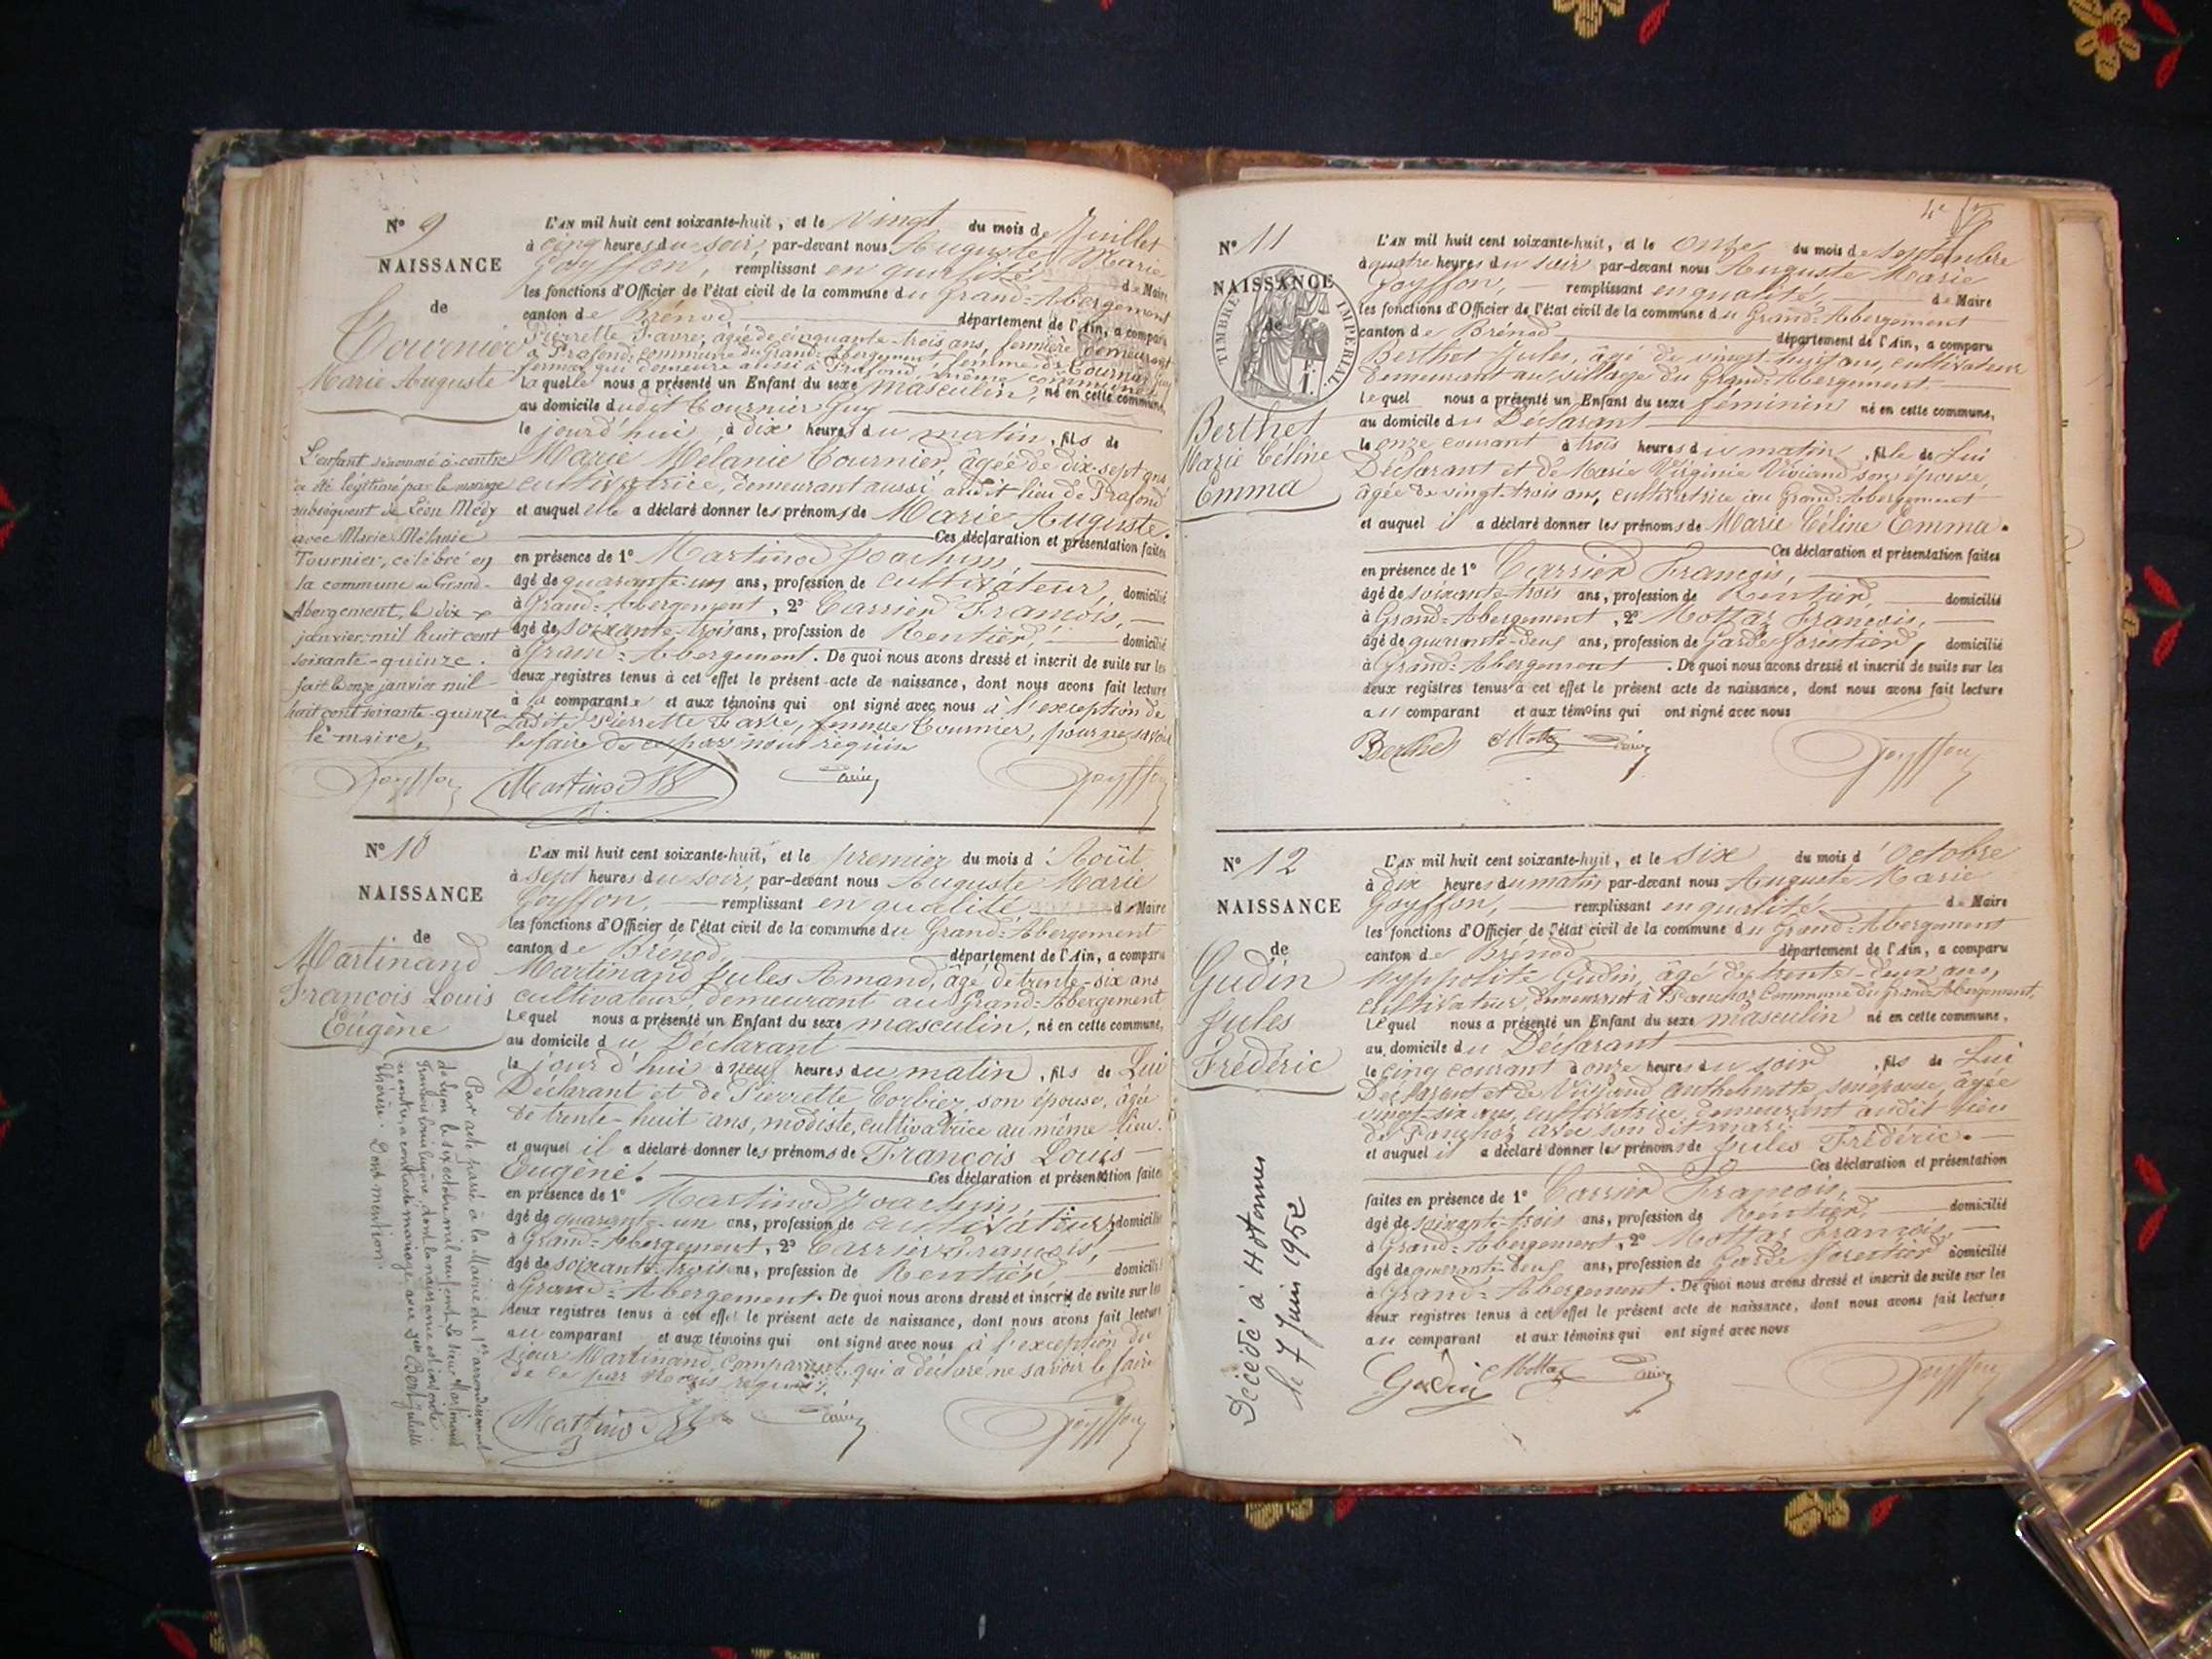 N° 9
NAISSANCE
de
Tournier
Marie Auguste
L'enfant dénommé ci-contre
a été légitimé par le mariage
subséquent de Léon Médy
avec Marie Mélanie
Tournier, célébré en
la commune du Grand-
Abergement, le dix
janvier mil huit cent
soixante-quinze.
fait le onze janvier mil
huit cent soixante-quinze
le maire,
Goyffon
L'AN mil huit cent soixante-huit, et le vingt du mois de Juillet
à cinq heures du soir, par-devant nous Auguste Marie
Goyffon, remplissant en qualité de Maire
les fonctions d'Officier de l'état civil de la commune du Grand-Abergement
canton de Brénod département de l'Ain, a comparu
Pierrette Favre, âgée de cinquante-trois ans, fermière demeurant
à Prafond, commune du Grand-Abergement, femme de Tournier Guy
fermier, qui demeure aussi à Prafond, même commune
laquelle nous a présenté un Enfant du sexe masculin, né en cette commune,
au domicile dudit Tournier Guy
le jourd'hui, à dix heures du matin, fils de
Marie Mélanie Tournier, âgée de dix-sept ans
cultivatrice, demeurant aussi audit lieu de Prafond
et auquel elle a déclaré donner les prénoms de Marie Auguste.
Ces déclaration et présentation faites
en présence de 1° Martinod Joachim,
âgé de quarante-un ans, profession de cultivateur, domicilié
à Grand-Abergement, 2° Carrier François,
âgé de soixante-trois ans, profession de Rentier, domicilié
à Grand-Abergement. De quoi nous avons dressé et inscrit de suite sur les
deux registres tenus à cet effet le présent acte de naissance, dont nous avons fait lecture
à la comparante et aux témoins qui ont signé avec nous à l'exception de
Ladite Pierrette Favre, femme Tournier, pour ne savoir
le faire de ce par nous requise
Martinod Carrier Goyffon
N° 10
NAISSANCE
de
Martinand
François Louis
Eugène
Par acte passé à la Mairie du 1er arrondissement
de Lyon le six octobre mil neuf cent le sieur Martinand
François Louis Eugène, dont la naissance est constatée
ci-contre, a contracté mariage avec Berl Juliette
Thérèse. Dont mention.
L'AN mil huit cent soixante-huit, et le premier du mois d'Août
à sept heures du soir, par-devant nous Auguste Marie
Goyffon, remplissant en qualité de Maire
les fonctions d'Officier de l'état civil de la commune du Grand-Abergement
canton de Brénod département de l'Ain, a comparu
Martinand Jules Amand, âgé de trente-six ans
cultivateur, demeurant au Grand-Abergement
Lequel nous a présenté un Enfant du sexe masculin, né en cette commune,
au domicile du Déclarant
le jourd'hui à neuf heures du matin, fils de Lui
Déclarant et de Pierrette Corbiez, son épouse, âgée
de trente-huit ans, modiste, cultivatrice au même lieu.
et auquel il a déclaré donner les prénoms de François Louis
Eugène. Ces déclaration et présentation faites
en présence de 1° Martinod Joachim,
âgé de quarante-un ans, profession de cultivateur, domicilié
à Grand-Abergement, 2° Carrier François,
âgé de soixante-trois ans, profession de Rentier, domicilié
à Grand-Abergement. De quoi nous avons dressé et inscrit de suite sur les
deux registres tenus à cet effet le présent acte de naissance, dont nous avons fait lecture
au comparant et aux témoins qui ont signé avec nous à l'exception du
sieur Martinand, comparant, qui a déclaré ne savoir le faire
de ce par Nous requis.
Martinod Carrier Goyffon
N° 11
NAISSANCE
de
TIMBRE IMPÉRIAL
Berthet
Marie Céline
Emma
L'AN mil huit cent soixante-huit, et le onze du mois de Septembre
à quatre heures du soir par-devant nous Auguste Marie
Goyffon, remplissant en qualité de Maire
les fonctions d'Officier de l'état civil de la commune du Grand-Abergement
canton de Brénod département de l'Ain, a comparu
Berthet Jules, âgé de vingt-huit ans, cultivateur
demeurant au village du Grand-Abergement.
lequel nous a présenté un Enfant du sexe féminin né en cette commune,
au domicile du Déclarant
le onze courant à trois heures du matin, fille de Lui
Déclarant et de Marie Virginie Viviand son épouse,
âgée de vingt-trois ans, cultivatrice au Grand-Abergement
et auquel il a déclaré donner les prénoms de Marie Céline Emma.
Ces déclaration et présentation faites
en présence de 1° Carrier François,
âgé de soixante-trois ans, profession de Rentier, domicilié
à Grand-Abergement, 2° Mottaz François,
âgé de quarante-deux ans, profession de garde forestier, domicilié
à Grand-Abergement. De quoi nous avons dressé et inscrit de suite sur les
deux registres tenus à cet effet le présent acte de naissance, dont nous avons fait lecture
au comparant et aux témoins qui ont signé avec nous
Berthet Mottaz Carrier Goyffon
N° 12
NAISSANCE
de
Gudin
Jules
Frédéric
Décédé à Hotonnes
le 7 Juin 1952
L'AN mil huit cent soixante-huit, et le six du mois d'Octobre
à dix heures du matin par-devant nous Auguste Marie
Goyffon, remplissant en qualité de Maire
les fonctions d'Officier de l'état civil de la commune du Grand-Abergement
canton de Brénod département de l'Ain, a comparu
hyppolite Gudin, âgé de trente-deux ans,
cultivateur, demeurant à Commune du Grand-Abergement,
Lequel nous a présenté un Enfant du sexe masculin né en cette commune,
au domicile du Déclarant
le cinq courant à onze heures du soir, fils de Lui
Déclarant et de Viviand Anthelmette son épouse, âgée
vingt-six ans, cultivatrice, demeurant audit lieu
de avec son dit mari
et auquel il a déclaré donner les prénoms de Jules Frédéric.
Ces déclaration et présentation
faites en présence de 1° Carrier François,
âgé de soixante-trois ans, profession de Rentier, domicilié
à Grand-Abergement, 2° Mottaz François,
âgé de quarante-deux ans, profession de Garde forestier domicilié
à Grand-Abergement. De quoi nous avons dressé et inscrit de suite sur les
deux registres tenus à cet effet le présent acte de naissance, dont nous avons fait lecture
au comparant et aux témoins qui ont signé avec nous
Gudin Mottaz Carrier Goyffon